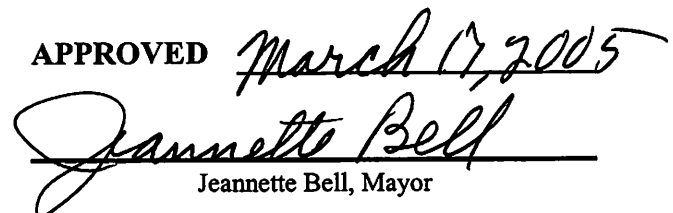 APPROVED March 17, 2005
Jeannette Bell
Jeannette Bell, Mayor